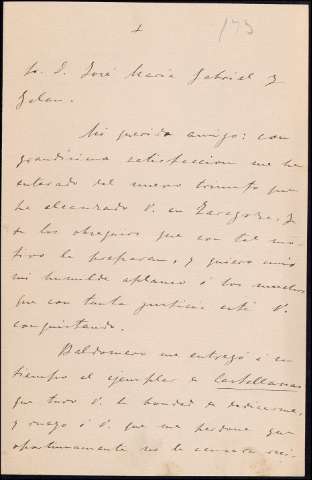 +
173
Sr. D. José María Gabriel y
Galan.
Mi querido amigo: con
grandísima satisfaccion me he
enterado del nuevo triunfo que
ha alcanzado V. en Zaragoza, y
de los obsequios que con tal mo-
tivo le preparan, y quiero unir
mi humilde aplauso á los muchos
que con tanta justicia está V.
conquistando.
Baldomero me entregó á su
tiempo el ejemplar de Castellanas
que tuvo V. la bondad de dedicarme,
y ruego á V. que me perdone que
oportunamente no le acusara reci-